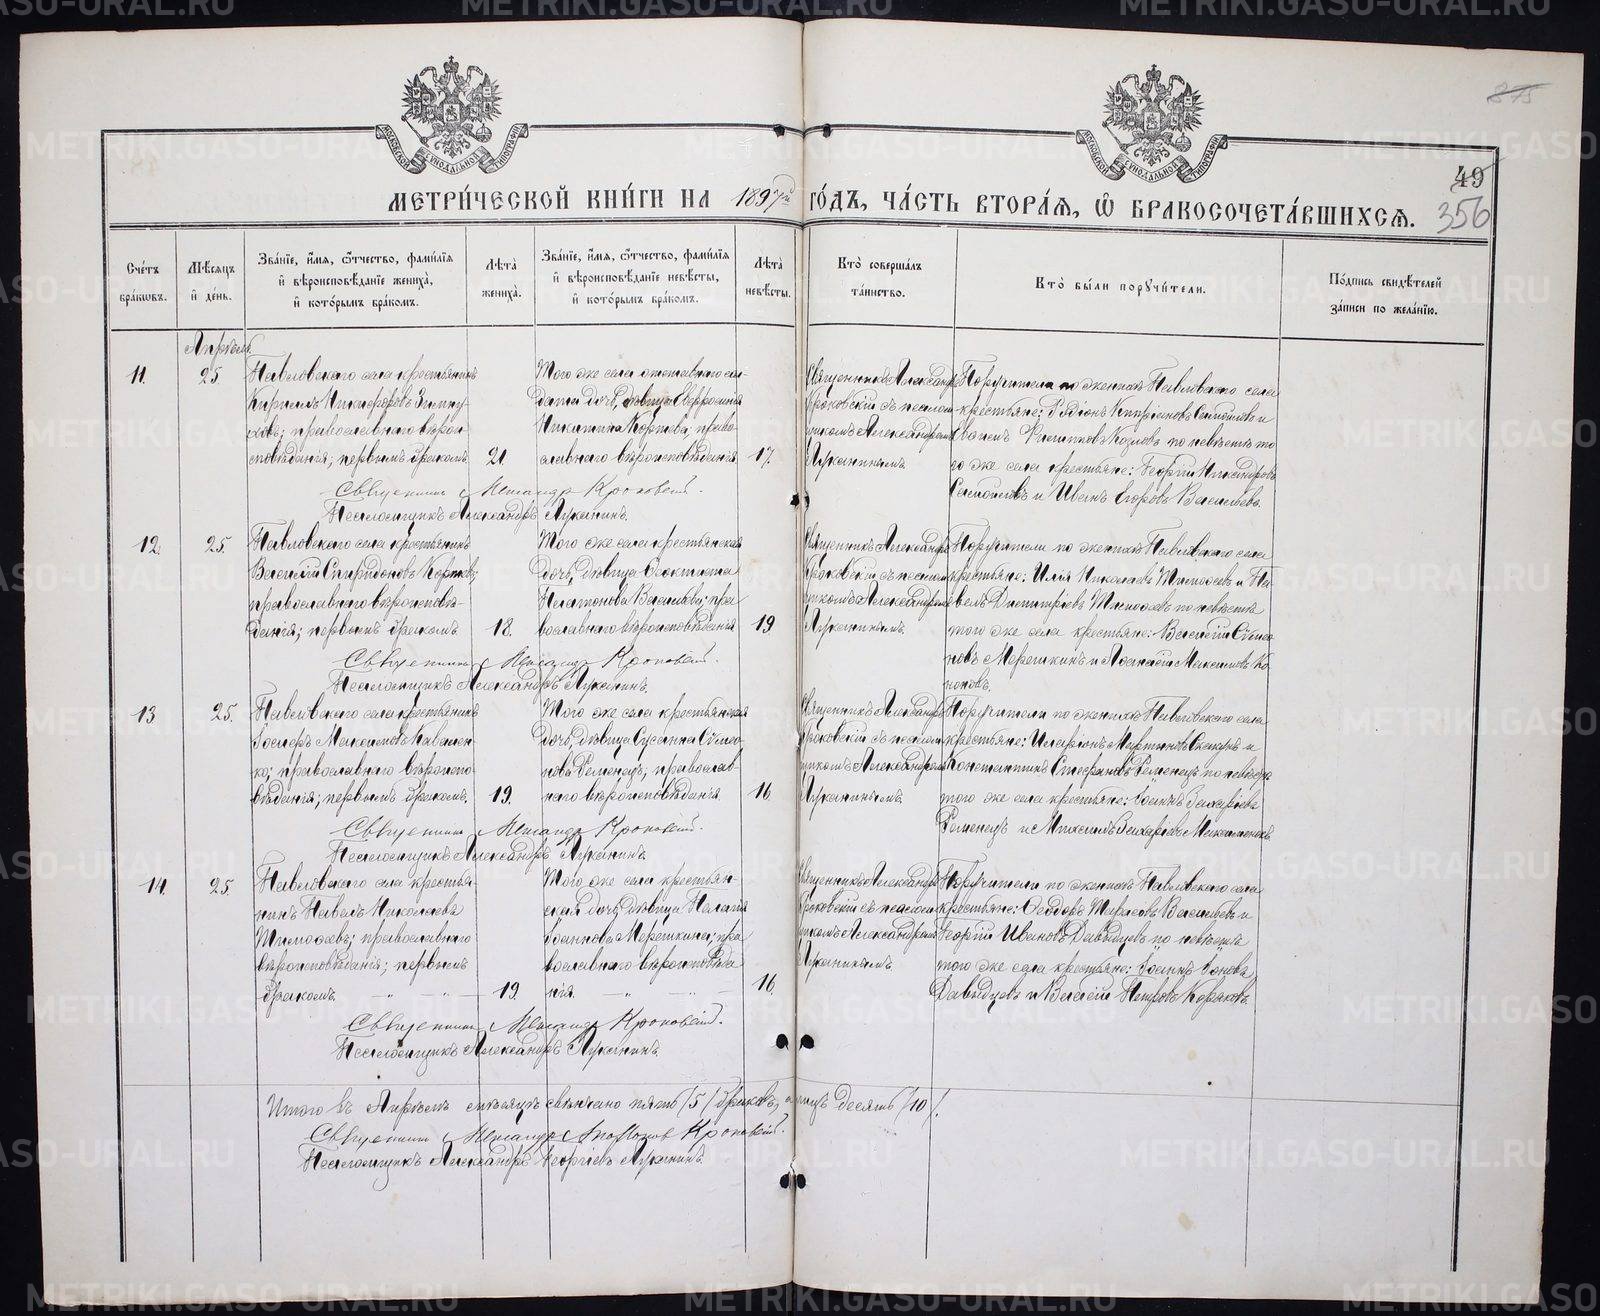 МЕТРИ́ЧЕСКОЙ КНИ́ГИ НА 1897й ГО́ДЪ, ЧА́СТЬ ВТОРА́Я, Ѡ БРАКОСОЧЕТА́ВШИХСЯ.
49
356
Сче́тъ бра́кѡвъ.
Мѣ́сяцъ и де́нь.
Зва́нїе, и́мя, ѻ́тчество, фами́лїя и вѣроисповѣ́данїе жениха̀, и кото́рымъ бра́комъ.
Лѣ́та жениха̀.
Зва́нїе, и́мя, ѻ́тчество, фами́лїя и вѣроисповѣ́данїе невѣ́сты, и кото́рымъ бра́комъ.
Лѣ́та невѣ́сты.
Кто̀ соверша́лъ та́инство.
Кто̀ бы́ли порꙋчи́тели.
По́дпись свидѣ́телей за́писи по жела́нїю.
Апрѣль.
11.
25.
Павловскаго села крестьянинъ
Кириллъ Никифоровъ
православнаго вѣрои-
сповѣданія; первымъ бракомъ.
21.
Того же села отставнаго сол-
дата дочь, дѣвица Евфросинія
Никитина Кортева, право-
славнаго вѣроисповѣданія
17.
Священникъ Александръ
Кроковскій съ псалом-
щикомъ Александромъ
Лукининымъ.
Поручители по женихѣ Павловскаго села
крестьяне:
по невѣстѣ то-
го же села крестьяне: Георгій
и Иванъ Егоровъ Васильевъ.
Священникъ Александръ Кроковскій.
Псаломщикъ Александръ Лукининъ.
12.
25.
Павловскаго села крестьянинъ
Василій Спиридоновъ Кортевъ;
православнаго вѣроисповѣ-
данія; первымъ бракомъ.
18.
Того же села крестьянская
дочь, дѣвица Феоктиста
Платонова Васильева; пра-
вославнаго вѣроисповѣданія
19
Священникъ Александръ
Кроковскій съ псалом-
щикомъ Александромъ
Лукининымъ.
Поручители по женихѣ Павловскаго села
крестьяне: Илія Николаевъ Тимофеевъ и Па-
велъ Димитріевъ Тимофеевъ по невѣстѣ
того же села крестьяне: Василій Симео-
новъ Мерешкинъ и Афанасій Максимовъ Ко-
ноновъ.
Священникъ Александръ Кроковскій.
Псаломщикъ Александръ Лукининъ.
13
25.
Павловскаго села крестьянинъ
Іосифъ Максимовъ Ковален-
ко; православнаго вѣроиспо-
вѣданія; первымъ бракомъ.
19.
Того же села крестьянская
дочь, дѣвица Сусанна Симео-
нова Ременецъ; православ-
наго вѣроисповѣданія.
16.
Священникъ Александръ
Кроковскій съ псалом-
щикомъ Александромъ
Лукининымъ.
Поручители по женихѣ Павловскаго села
крестьяне: Иларіонъ Мартиновъ и
Константинъ Стефановъ Ременецъ по невѣстѣ
того же села крестьяне: Іоаннъ Захаріевъ
Ременецъ и Максимъ Захаріевъ
Священникъ Александръ Кроковскій.
Псаломщикъ Александръ Лукининъ.
14.
25.
Павловскаго села крестья-
нинъ Павелъ Николаевъ
Тимофеевъ; православнаго
вѣроисповѣданія; первымъ
бракомъ.
19.
Того же села крестьян-
ская дочь, дѣвица Пелагія
Іоаннова Мерешкина; пра-
вославнаго вѣроисповѣда-
нія.
16.
Священникъ Александръ
Кроковскій съ псалом-
щикомъ Александромъ
Лукининымъ.
Поручители по женихѣ Павловскаго села
крестьяне: Ѳеодоръ Тарасовъ Васильевъ и
Георгій Ивановъ Давыдцевъ по невѣстѣ
того же села крестьяне: Іоаннъ Іоновъ
Давыдцевъ и Василій Петровъ Коряковъ.
Священникъ Александръ Кроковскій.
Псаломщикъ Александръ Лукининъ.
Итого въ Апрѣлѣ мѣсяцѣ свѣнчано пять /5/ браковъ, а лицъ десять /10/.
Священникъ Александръ Кроковскій.
Псаломщикъ Александръ Георгіевъ Лукининъ.
METRIKI.GASO-URAL.RU